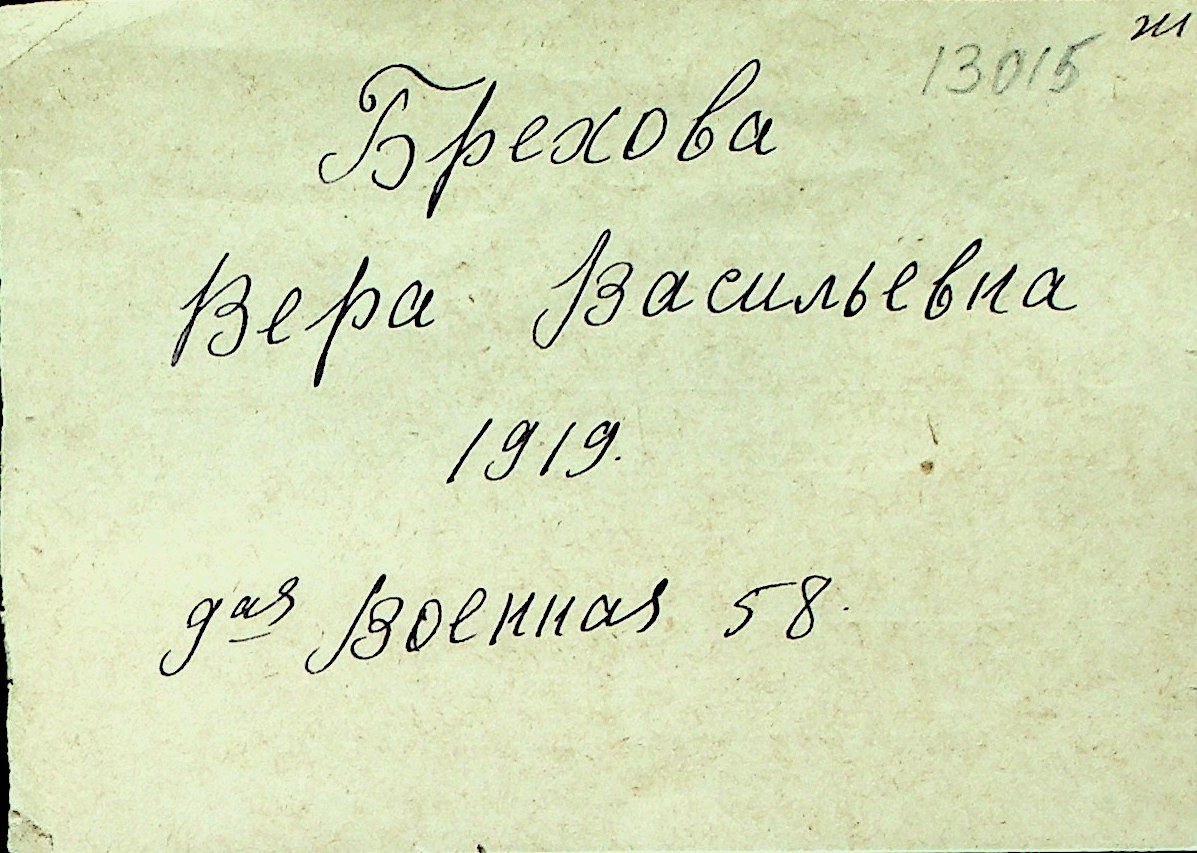 ж
13015
Брехова
Вера Васильевна
1919.
9ая Военная 58.